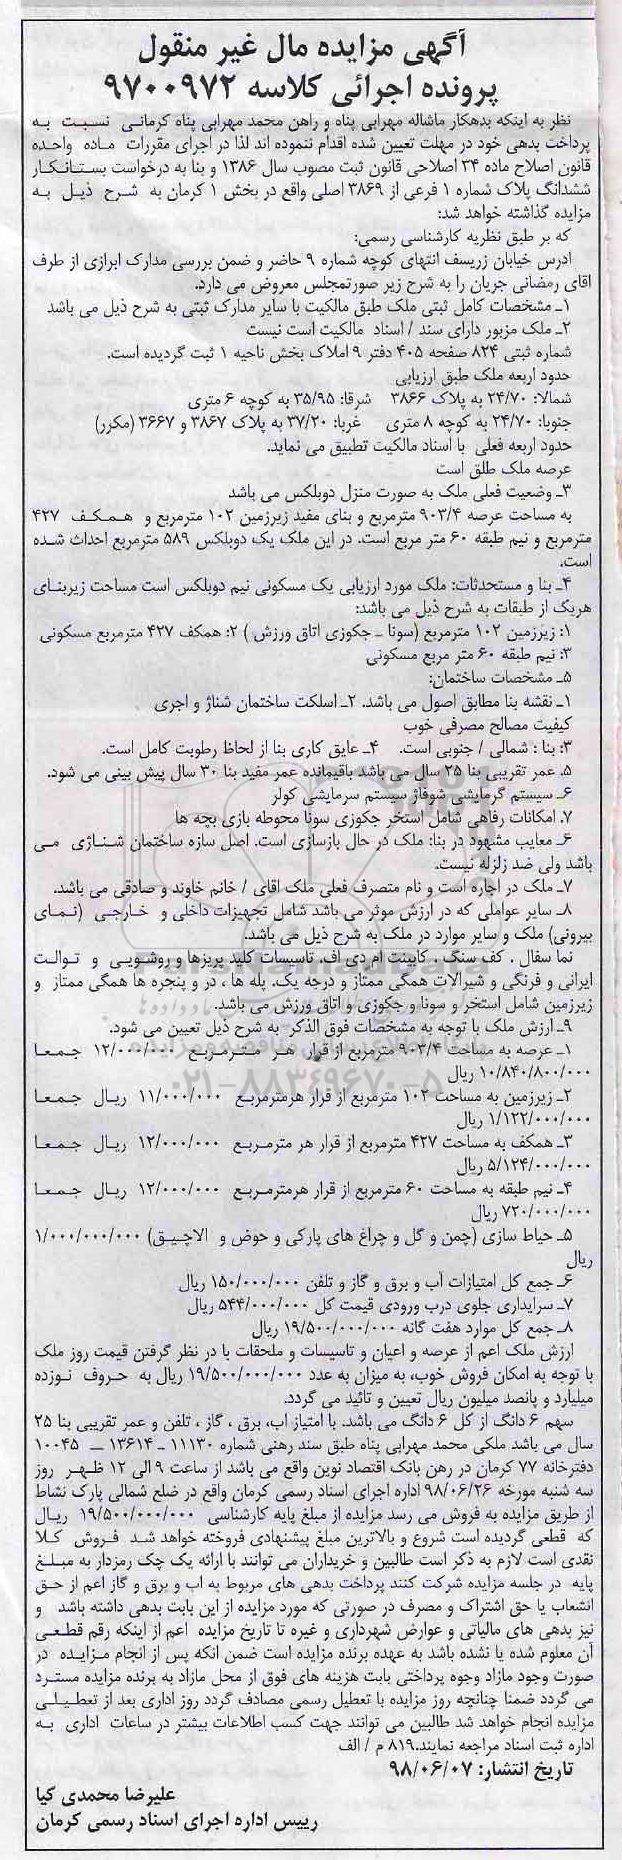 آگهی مزایده مال غیر منقول
پرونده اجرائی کلاسه ۹۷۰۰۹۷۲
نظر به اینکه بدهکار ماشاله مهرابی پناه و راهن محمد مهرابی پناه کرمانی نسبت به
پرداخت بدهی خود در مهلت تعیین شده اقدام ننموده اند لذا در اجرای مقررات ماده واحده
قانون اصلاح ماده ۳۴ اصلاحی قانون ثبت مصوب سال ۱۳۸۶ و بنا به درخواست بستانکار
ششدانگ پلاک شماره ۱ فرعی از ۳۸۶۹ اصلی واقع در بخش ۱ کرمان به شرح ذیل به
مزایده گذاشته خواهد شد:
که بر طبق نظریه کارشناسی رسمی:
ادرس خیابان زریسف انتهای کوچه شماره ۹ حاضر و ضمن بررسی مدارک ابرازی از طرف
اقای رمضانی جریان را به شرح زیر صورتمجلس معروض می دارد.
۱ـ مشخصات کامل ثبتی ملک طبق مالکیت با سایر مدارک ثبتی به شرح ذیل می باشد
۲ـ ملک مزبور دارای سند / اسناد مالکیت است نیست
شماره ثبتی ۸۲۴ صفحه ۴۰۵ دفتر ۹ املاک بخش ناحیه ۱ ثبت گردیده است.
حدود اربعه ملک طبق ارزیابی
شمالا: ۲۴/۷۰ به پلاک ۳۸۶۶ شرقا: ۳۵/۹۵ به کوچه ۶ متری
جنوبا: ۲۴/۷۰ به کوچه ۸ متری غربا: ۳۷/۲۰ به پلاک ۳۸۶۷ و ۳۶۶۷ (مکرر)
حدود اربعه فعلی با اسناد مالکیت تطبیق می نماید.
عرصه ملک طلق است
۳ـ وضعیت فعلی ملک به صورت منزل دوبلکس می باشد
به مساحت عرصه ۹۰۳/۴ مترمربع و بنای مفید زیرزمین ۱۰۲ مترمربع و همکف ۴۲۷
مترمربع و نیم طبقه ۶۰ متر مربع است. در این ملک یک دوبلکس ۵۸۹ مترمربع احداث شده
است.
۴ـ بنا و مستحدثات: ملک مورد ارزیابی یک مسکونی نیم دوبلکس است مساحت زیربنای
هریک از طبقات به شرح ذیل می باشد:
۱: زیرزمین ۱۰۲ مترمربع (سونا ـ جکوزی اتاق ورزش ) ۲: همکف ۴۲۷ مترمربع مسکونی
۳: نیم طبقه ۶۰ متر مربع مسکونی
۵ـ مشخصات ساختمان:
۱ـ نقشه بنا مطابق اصول می باشد. ۲ـ اسلکت ساختمان شناژ و اجری
کیفیت مصالح مصرفی خوب
۳: بنا : شمالی / جنوبی است. ۴ـ عایق کاری بنا از لحاظ رطوبت کامل است.
۵. عمر تقریبی بنا ۲۵ سال می باشد باقیمانده عمر مفید بنا ۳۰ سال پیش بینی می شود.
۶ـ سیستم گرمایشی شوفاژ سیستم سرمایشی کولر
۷. امکانات رفاهی شامل استخر جکوزی سونا محوطه بازی بچه ها
۶ـ معایب مشهود در بنا: ملک در حال بازسازی است. اصل سازه ساختمان شناژی می
باشد ولی ضد زلزله نیست.
۷ـ ملک در اجاره است و نام متصرف فعلی ملک اقای / خانم خاوند و صادقی می باشد.
۸ـ سایر عواملی که در ارزش موثر می باشد شامل تجهیزات داخلی و خارجی (نمای
بیرونی) ملک و سایر موارد در ملک به شرح ذیل می باشد.
نما سفال . کف سنگ . کابینت ام دی اف. تاسیسات کلید پریزها و روشویی و توالت
ایرانی و فرنگی و شیرالات همگی ممتاز و درجه یک. پله ها ، در و پنجره ها همگی ممتاز و
زیرزمین شامل استخر و سونا و جکوزی و اتاق ورزش می باشد.
۹ـ ارزش ملک با توجه به مشخصات فوق الذکر به شرح ذیل تعیین می شود.
۱ـ عرصه به مساحت ۹۰۳/۴ مترمربع از قرار هر مترمربع ۱۲/۰۰۰/۰۰۰ جمعا
۱۰/۸۴۰/۸۰۰/۰۰۰ ریال
۲ـ زیرزمین به مساحت ۱۰۲ مترمربع از قرار هرمترمربع ۱۱/۰۰۰/۰۰۰ ریال جمعا
۱/۱۲۲/۰۰۰/۰۰۰ ریال
۳ـ همکف به مساحت ۴۲۷ مترمربع از قرار هر مترمربع ۱۲/۰۰۰/۰۰۰ ریال جمعا
۵/۱۲۴/۰۰۰/۰۰۰ ریال
۴ـ نیم طبقه به مساحت ۶۰ مترمربع از قرار هرمترمربع ۱۲/۰۰۰/۰۰۰ ریال جمعا
۷۲۰/۰۰۰/۰۰۰ ریال
۵ـ حیاط سازی (چمن و گل و چراغ های پارکی و حوض و الاچیق) ۱/۰۰۰/۰۰۰/۰۰۰
ریال
۶ـ جمع کل امتیازات آب و برق و گاز و تلفن ۱۵۰/۰۰۰/۰۰۰ ریال
۷ـ سرایداری جلوی درب ورودی قیمت کل ۵۴۴/۰۰۰/۰۰۰ ریال
۸ـ جمع کل موارد هفت گانه ۱۹/۵۰۰/۰۰۰/۰۰۰ ریال
ارزش ملک اعم از عرصه و اعیان و تاسیسات و ملحقات با در نظر گرفتن قیمت روز ملک
با توجه به امکان فروش خوب، به میزان به عدد ۱۹/۵۰۰/۰۰۰/۰۰۰ ریال به حروف نوزده
میلیارد و پانصد میلیون ریال تعیین و تائید می گردد.
سهم ۶ دانگ از کل ۶ دانگ می باشد. با امتیاز اب، برق ، گاز ، تلفن و عمر تقریبی بنا ۲۵
سال می باشد ملکی محمد مهرابی پناه طبق سند رهنی شماره ۱۱۱۳۰ ـ ۱۳۶۱۴ ـ ۱۰۰۴۵
دفترخانه ۷۷ کرمان در رهن بانک اقتصاد نوین واقع می باشد از ساعت ۹ الی ۱۲ ظهر روز
سه شنبه مورخه ۹۸/۰۶/۲۶ اداره اجرای اسناد رسمی کرمان واقع در ضلع شمالی پارک نشاط
از طریق مزایده به فروش می رسد مزایده از مبلغ پایه کارشناسی ۱۹/۵۰۰/۰۰۰/۰۰۰ ریال
که قطعی گردیده است شروع و بالاترین مبلغ پیشنهادی فروخته خواهد شد فروش کلا
نقدی است لازم به ذکر است طالبین و خریداران می توانند با ارائه یک چک رمزدار به مبلغ
پایه در جلسه مزایده شرکت کنند پرداخت بدهی های مربوط به اب و برق و گاز اعم از حق
انشعاب یا حق اشتراک و مصرف در صورتی که مورد مزایده از این بابت بدهی داشته باشد و
نیز بدهی های مالیاتی و عوارض شهرداری و غیره تا تاریخ مزایده اعم از اینکه رقم قطعی
آن معلوم شده یا نشده باشد به عهده برنده مزایده است ضمن انکه پس از انجام مزایده در
صورت وجود مازاد وجوه پرداختی بابت هزینه های فوق از محل مازاد به برنده مزایده مسترد
می گردد ضمنا چنانچه روز مزایده با تعطیل رسمی مصادف گردد روز اداری بعد از تعطیلی
مزایده انجام خواهد شد طالبین می توانند جهت کسب اطلاعات بیشتر در ساعات اداری به
اداره ثبت اسناد مراجعه نمایند.۸۱۹ م / الف
تاریخ انتشار: ۹۸/۰۶/۰۷
علیرضا محمدی کیا
رییس اداره اجرای اسناد رسمی کرمان
۰۲۱-۸۸۳۴۹۶۷۰-۵